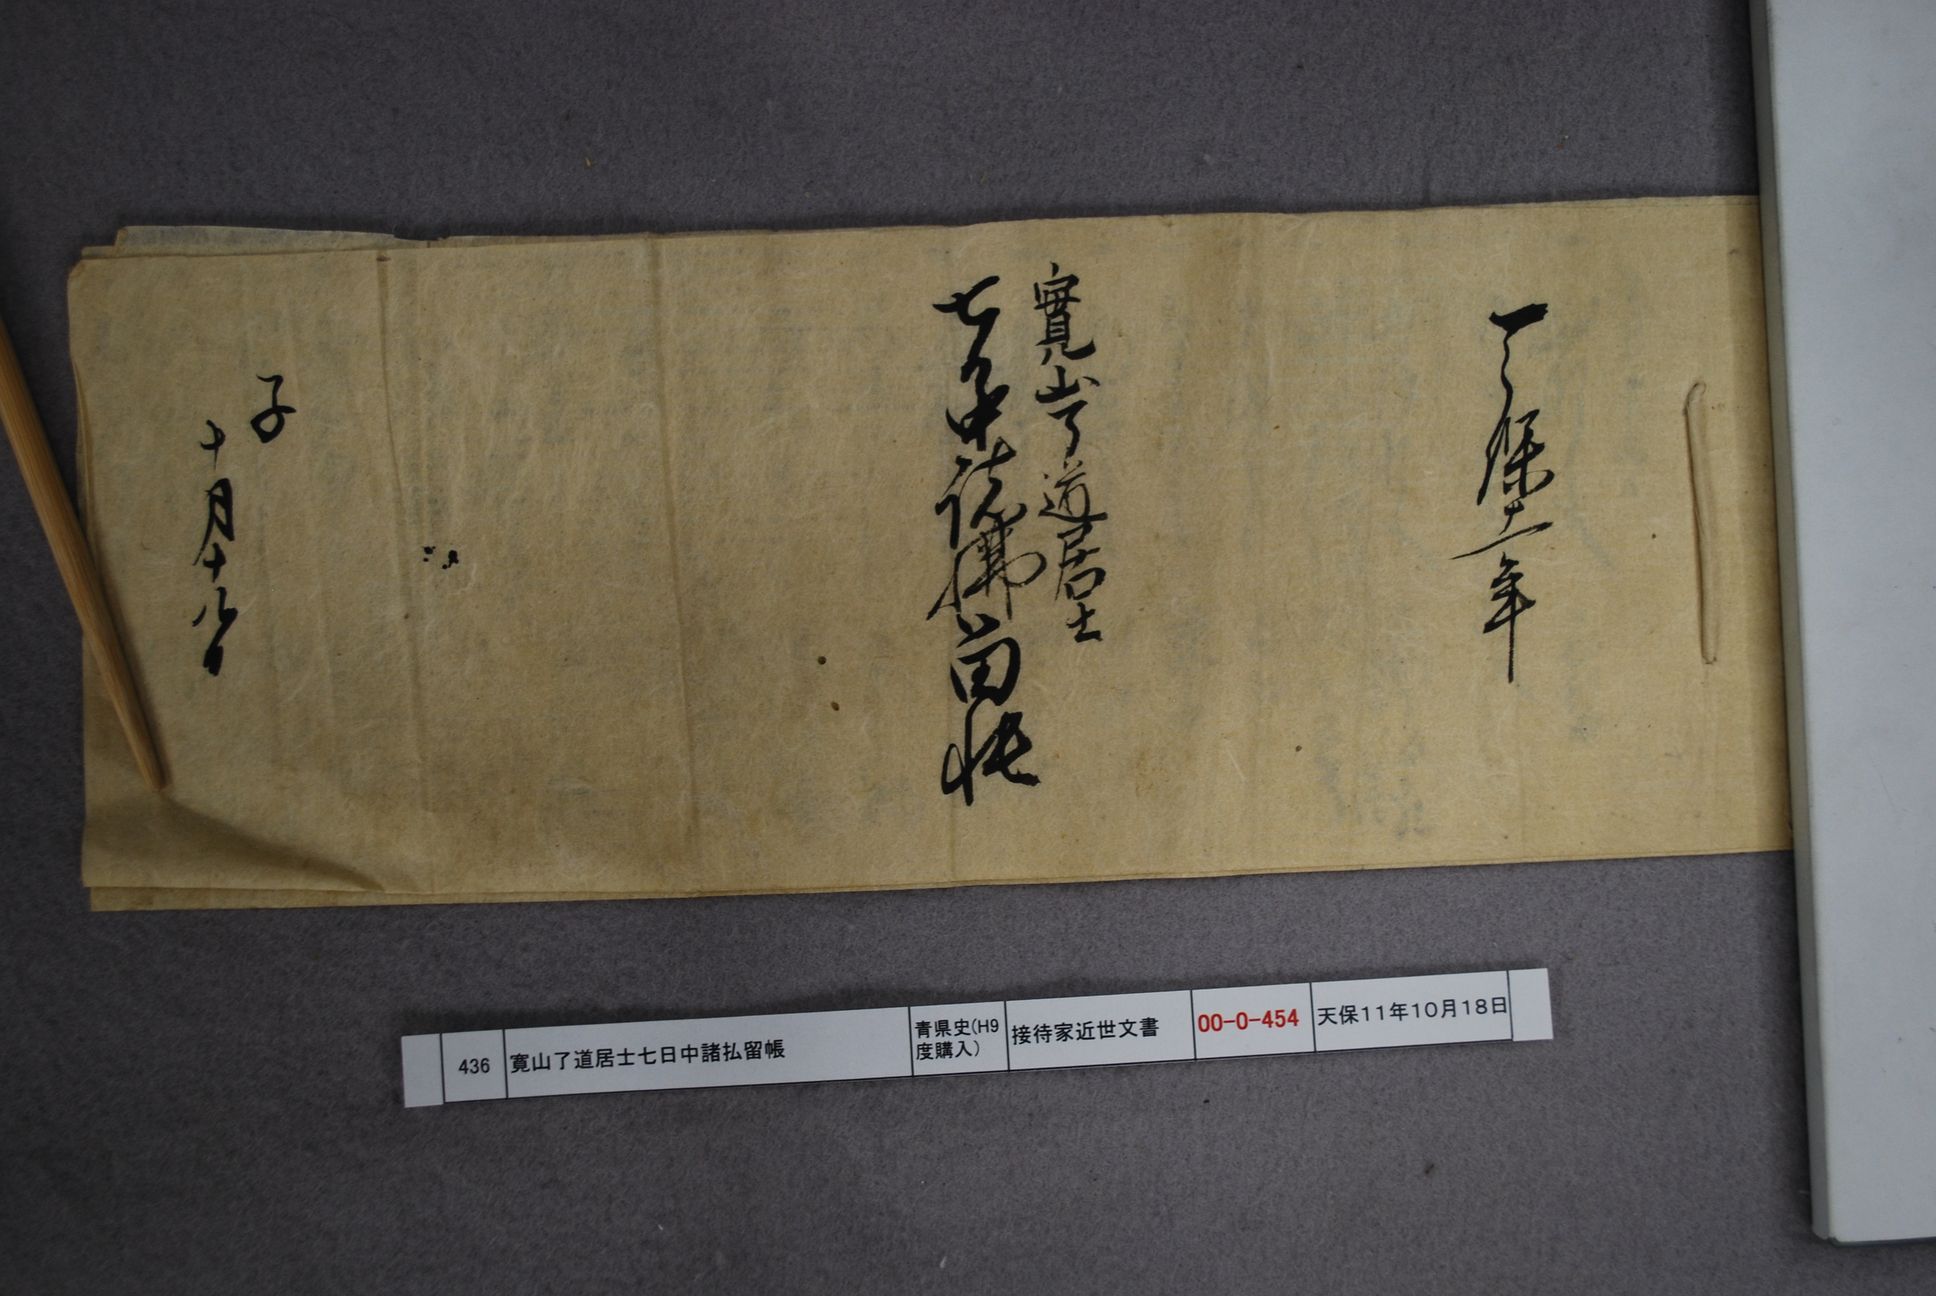 天保十一年
寛山了道居士
七日中諸拂留帳
子
十月十八日
436
寛山了道居士七日中諸払留帳
青県史(H9
度購入)
接待家近世文書
00-0-454
天保11年10月18日